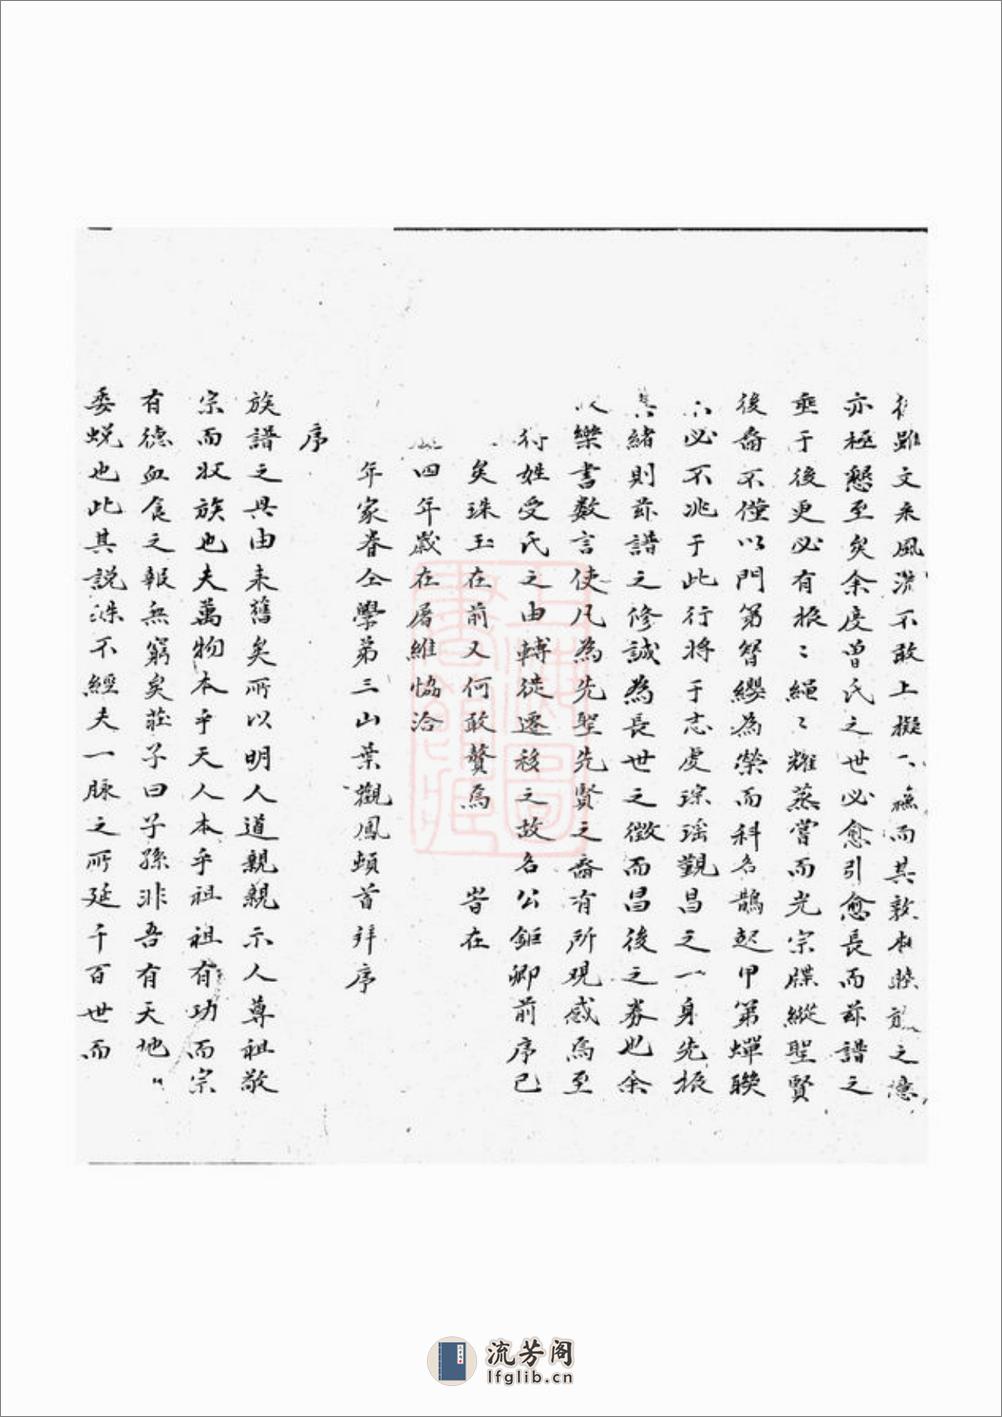 雖文采風流不敢上擬而其敦本之意
亦極懇至矣余度曾氏之世必愈引愈長而茲譜之
垂于後更必有振〻繩〻耀蒸嘗而光宗牒縱聖賢
後裔不僅以門第簪纓為榮而科名鵲起甲第蟬聯
必不兆于此行將于志處琮瑶觀昌之一身先振
緒則茲譜之修誠為長世之徵而昌後之券也余
樂書數言使凡為先聖先賢之裔有所觀感焉至
姓受氏之由轉徙遷移之故名公鉅卿前序已
矣珠玉在前又何敢贅焉 旹在
四年歲在屠維協洽
年家眷仝學弟三山葉觀鳳頓首拜序
序
族譜之具由来舊矣所以明人道親親示人尊祖敬
宗而收族也夫萬物本乎天人本乎祖祖有功而宗
有德血食之報無窮矣莊子曰子孫非吾有天地
委蜕也此其說洙不經夫一脉之所延千百世而
上海圖書館藏
流芳阁
lfglib.cn